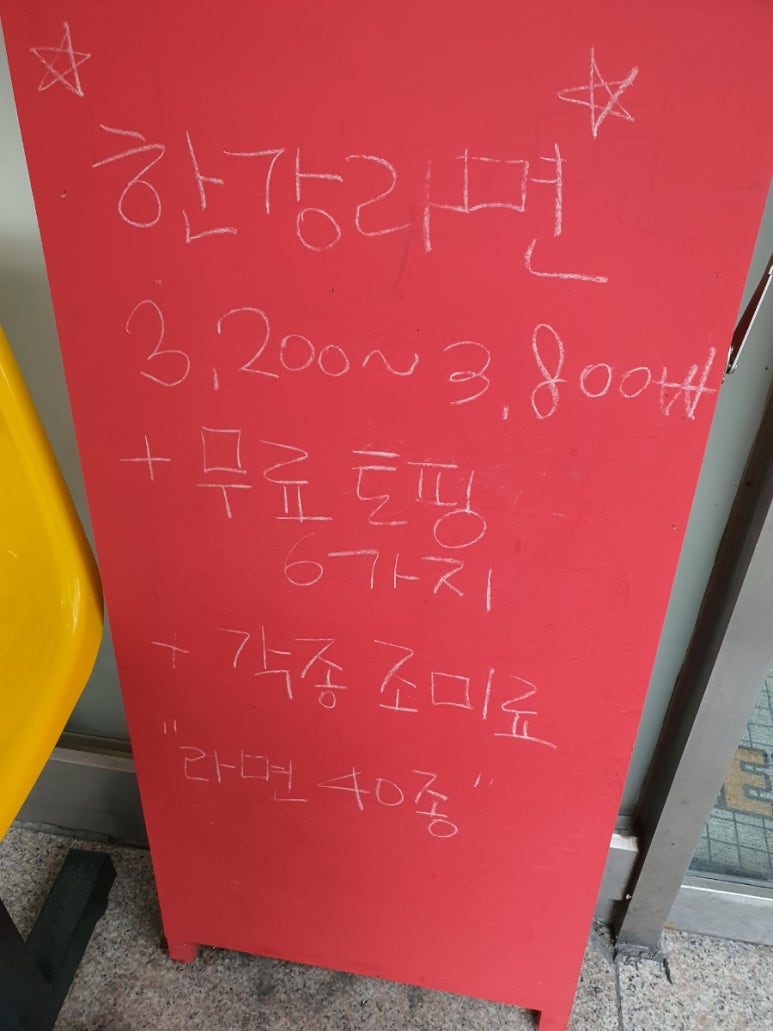 ☆ ☆
한강라면
3,200~3,800₩
+ 무료 토핑
6가지
+ 각종 조미료
"라면 40종"